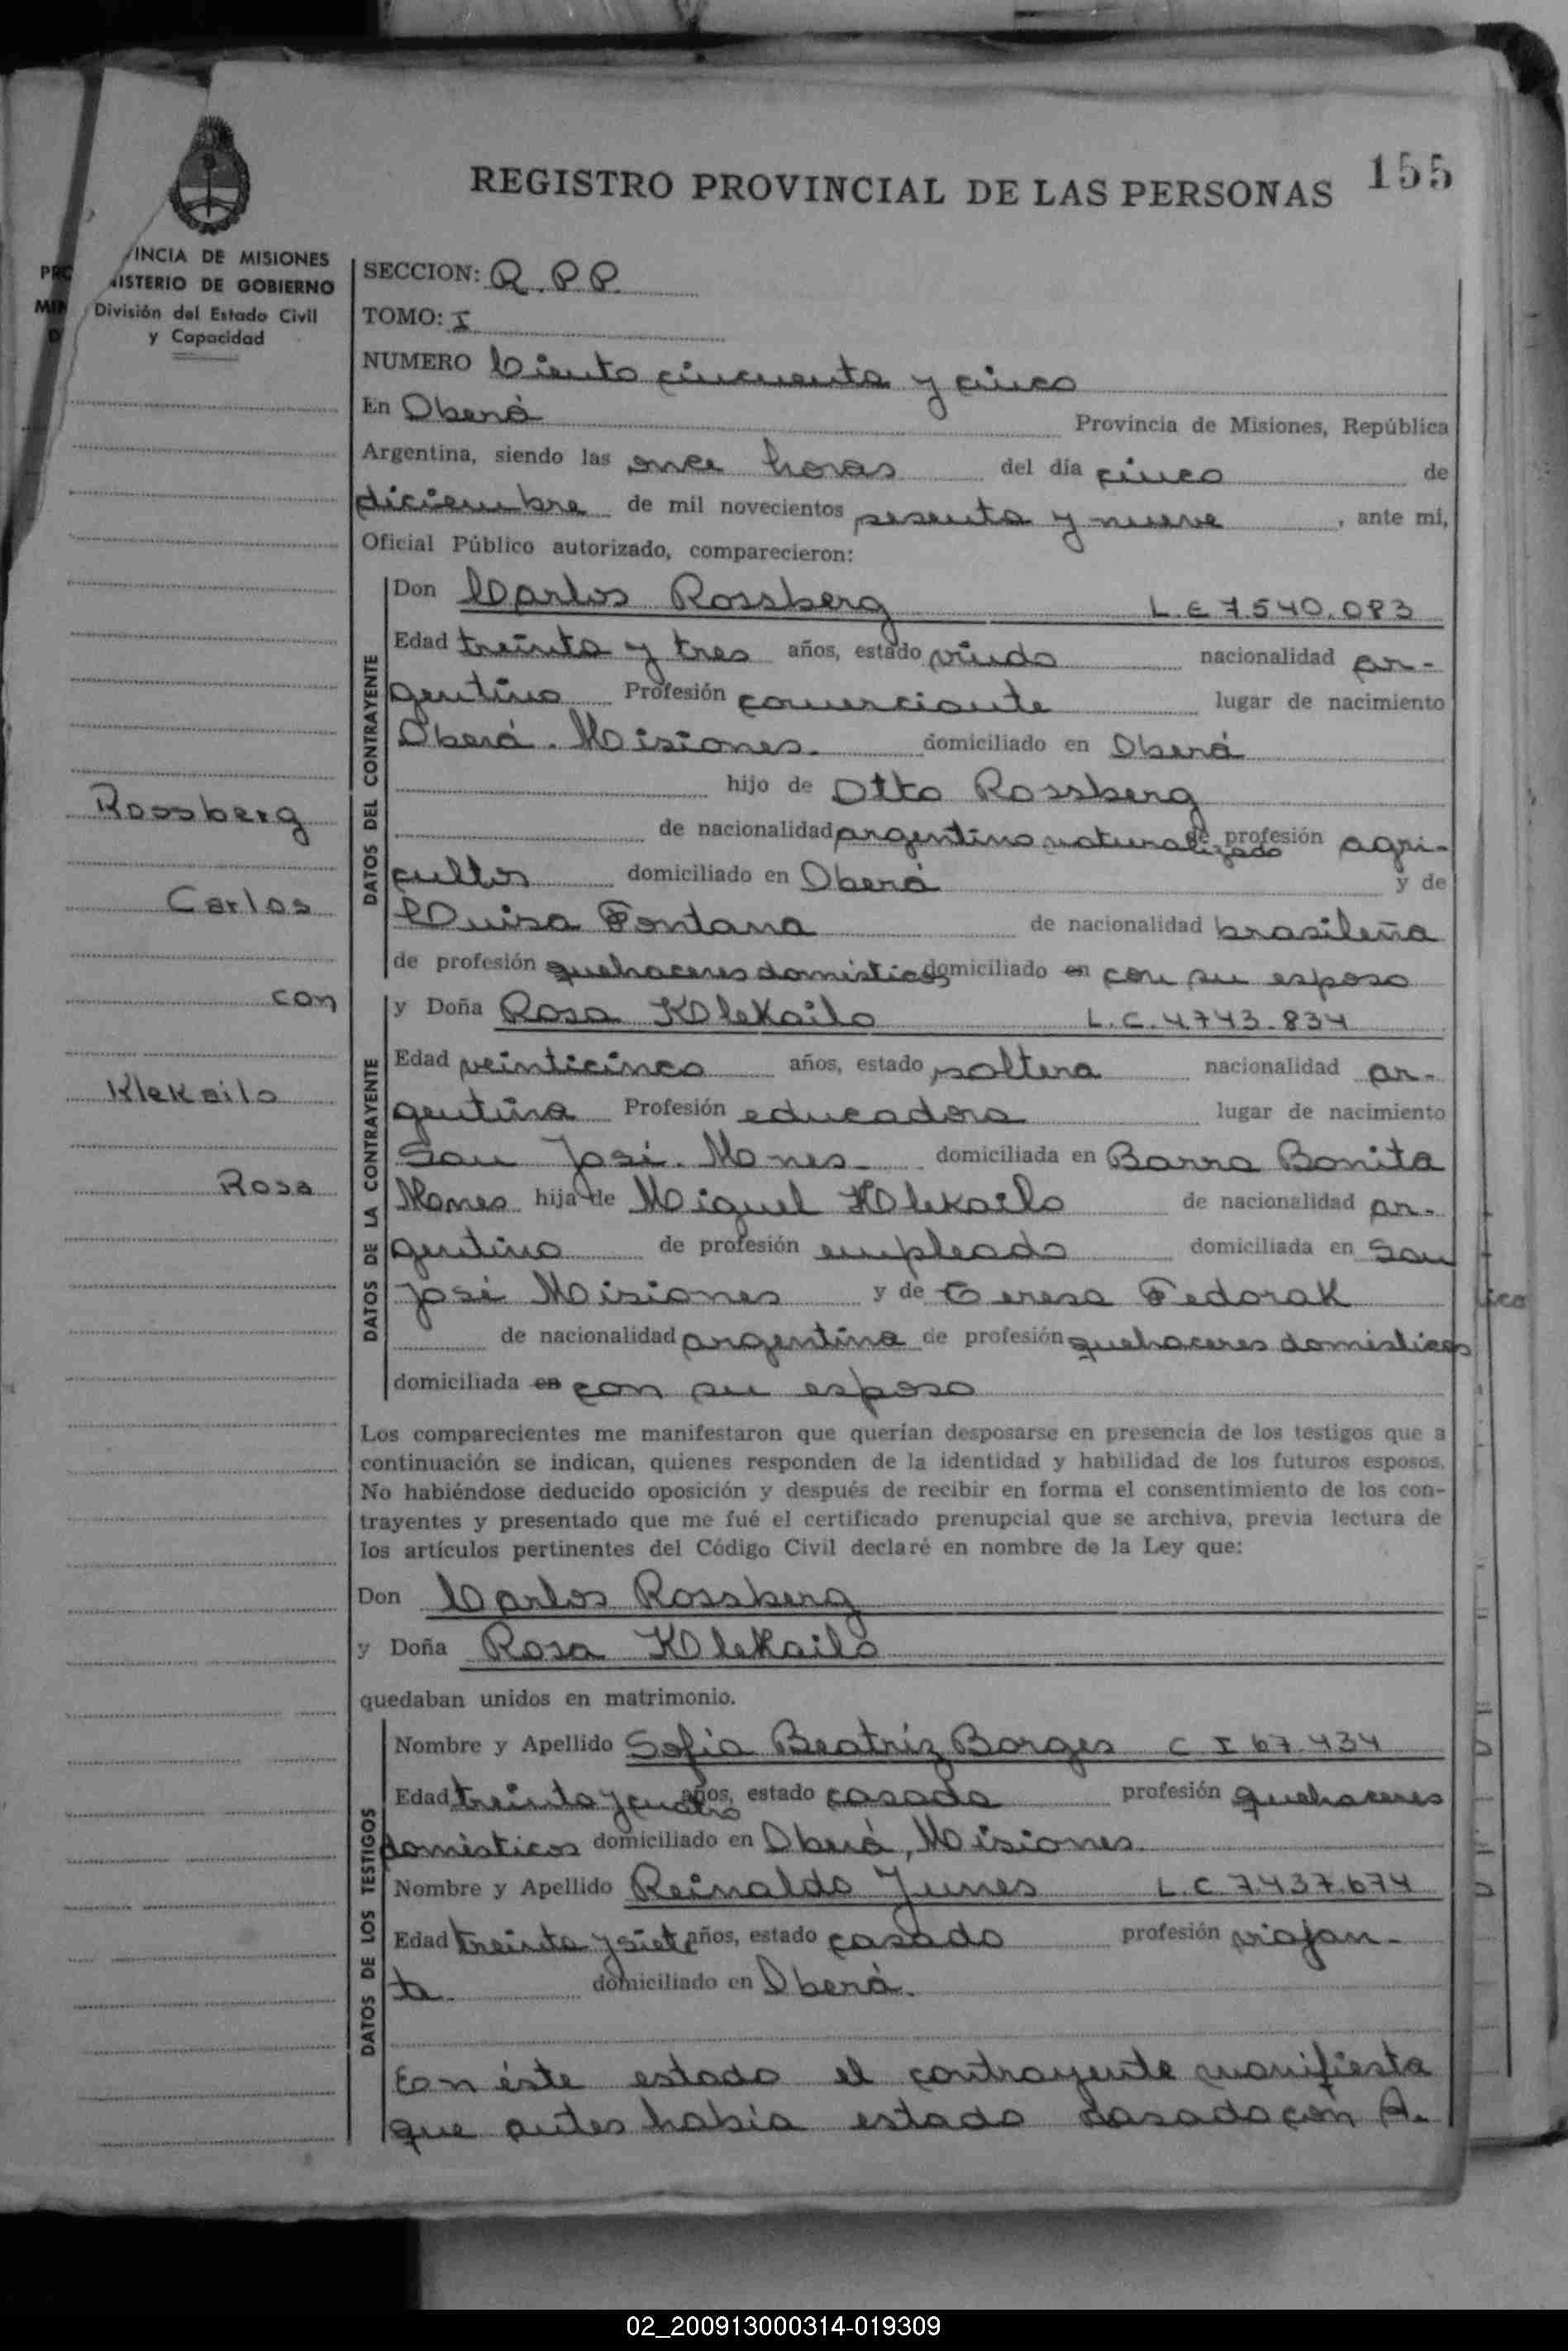 155
REGISTRO PROVINCIAL DE LAS PERSONAS
PRO
MIN
D
VINCIA DE MISIONES
NISTERIO DE GOBIERNO
División del Estado Civil
y Capacidad
Rossberg
Carlos
con
Klekailo
Rosa
SECCION: R.P.P.
TOMO: I
NUMERO Ciento cincuenta y cinco
En Oberá Provincia de Misiones, República
Argentina, siendo las once horas del día cinco de
diciembre de mil novecientos sesenta y nueve, ante mi,
Oficial Público autorizado, comparecieron:
DATOS DEL CONTRAYENTE
Don Carlos Rossberg L.E 7.540.083
Edad treinta y tres años, estado viudo nacionalidad ar-
gentino Profesión comerciante lugar de nacimiento
Oberá. Misiones. domiciliado en Oberá
hijo de Otto Rossberg
de nacionalidad argentino naturalizado de profesión agri-
cultor domiciliado en Oberá y de
Luisa Fontana de nacionalidad brasileña
de profesión quehaceres domésticos domiciliado en con su esposo
DATOS DE LA CONTRAYENTE
y Doña Rosa Klekailo L.C.4.743.834
Edad veinticinco años, estado soltera nacionalidad ar-
gentina Profesión educadora lugar de nacimiento
San José. Mones. domiciliada en Barra Bonita
Mones hija de Miguel Klekailo de nacionalidad ar-
gentino de profesión empleado domiciliada en San
José Misiones y de Teresa Fedorak
de nacionalidad argentina de profesión quehaceres domésticos
domiciliada en con su esposo
Los comparecientes me manifestaron que querían desposarse en presencia de los testigos que a
continuación se indican, quienes responden de la identidad y habilidad de los futuros esposos.
No habiéndose deducido oposición y después de recibir en forma el consentimiento de los con-
trayentes y presentado que me fué el certificado prenupcial que se archiva, previa lectura de
los artículos pertinentes del Código Civil declaré en nombre de la Ley que:
Don Carlos Rossberg
y Doña Rosa Klekailo
quedaban unidos en matrimonio.
DATOS DE LOS TESTIGOS
Nombre y Apellido Sofia Beatríz Borges C I 67.434
Edad treinta y cuatro años, estado casada profesión quehaceres
domésticos domiciliado en Oberá, Misiones.
Nombre y Apellido Reinaldo Junes L.C 7.437.674
Edad treinta y siete años, estado casado profesión viajan-
te. domiciliado en Oberá.
En éste estado el contrayente manifiesta
que antes había estado casado con A.
02_200913000314-019309